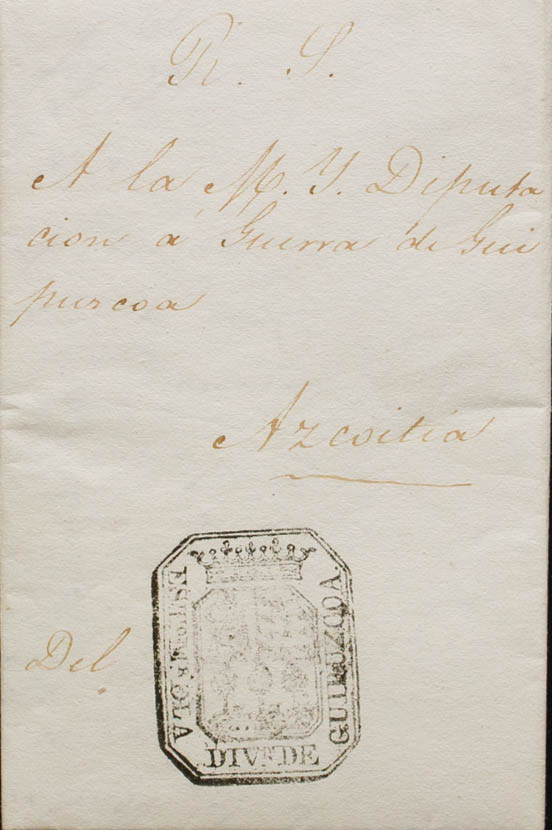 R. S.
A la M. Y. Diputa
cion a Guerra de Gui
puzcoa
Azcoitia
Del
DIVN DE
GUIPUZCOA